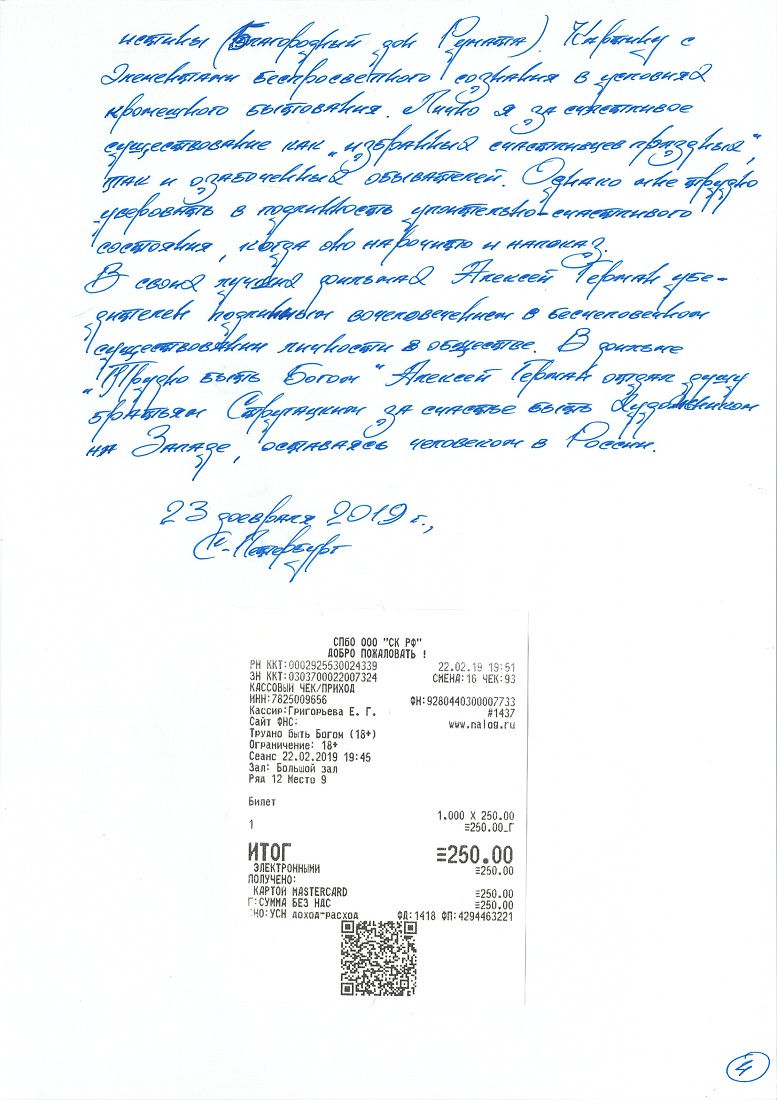 истины (Благородный дон Румата). Картину с
элементами беспросветного сознания в условиях
кромешного бытования. Лично я за счастливое
существование как „избранных счастливцев праздных",
так и озабоченных обывателей. Однако мне трудно
уверовать в подлинность упоительно-счастливого
состояния, когда оно нарочито и напоказ.
В своих лучших фильмах Алексей Герман убе-
дителен подлинным вочеловечением в бесчеловечном
существовании личности в обществе. В фильме
„Трудно быть Богом" Алексей Герман отдал душу
братьям Стругацким за счастье быть Художником
на Западе, оставаясь человеком в России.
23 февраля 2019 г.,
С.-Петербург
СПбО ООО "СК РФ"
ДОБРО ПОЖАЛОВАТЬ !
РН ККТ:0002925530024339 22.02.19 19:51
ЗН ККТ:0303700022007324 СМЕНА:16 ЧЕК:93
КАССОВЫЙ ЧЕК/ПРИХОД
ИНН:7825009656 ФН:9280440300007733
Кассир:Григорьева Е. Г. #1437
Сайт ФНС: www.nalog.ru
Трудно быть Богом (18+)
Ограничение: 18+
Сеанс 22.02.2019 19:45
Зал: Большой зал
Ряд 12 Место 9
Билет
1.000 X 250.00
1 ≡250.00_Г
ИТОГ ≡250.00
ЭЛЕКТРОННЫМИ ≡250.00
ПОЛУЧЕНО:
КАРТОЙ MASTERCARD ≡250.00
Г:СУММА БЕЗ НДС ≡250.00
СНО:УСН доход-расход ФД:1418 ФП:4294463221
4